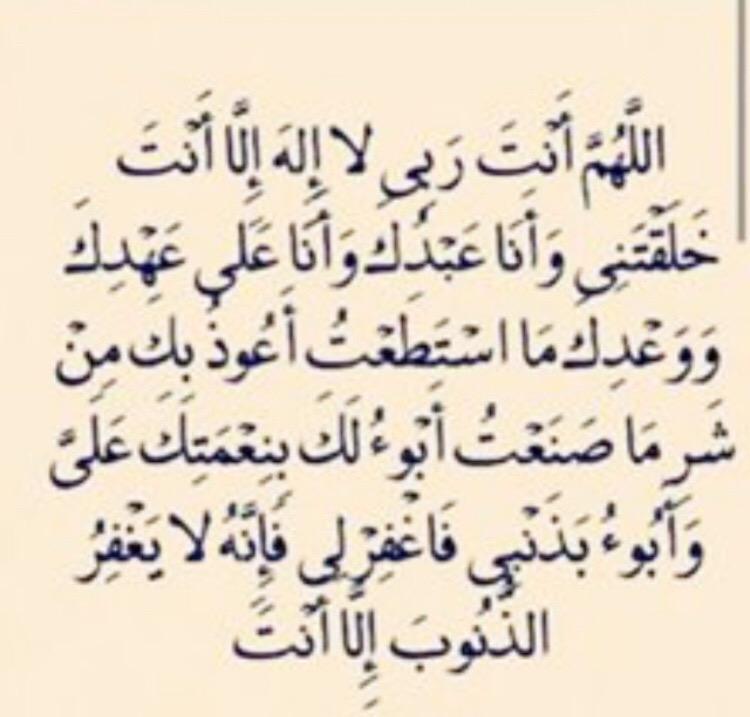 اللَّهُمَّ أَنْتَ رَبِي لا إِلهَ إِلَّا أَنْتَ
خَلَقْتَنِي وَأَنَا عَبْدُكَ وَأَنَا عَلَى عَهْدِكَ
وَوَعْدِكَ مَا اسْتَطَعْتُ أَعُوذُ بِكَ مِنْ
شَرِ مَا صَنَعْتُ أَبُوءُ لَكَ بِنِعْمَتِكَ عَلَىَّ
وَأَبُوءُ بَذَنْبِي فَاغْفِرْلِي فَإِنَّهُ لا يَغْفِرُ
الذُّنُوبَ إِلَّا أَنْتَ